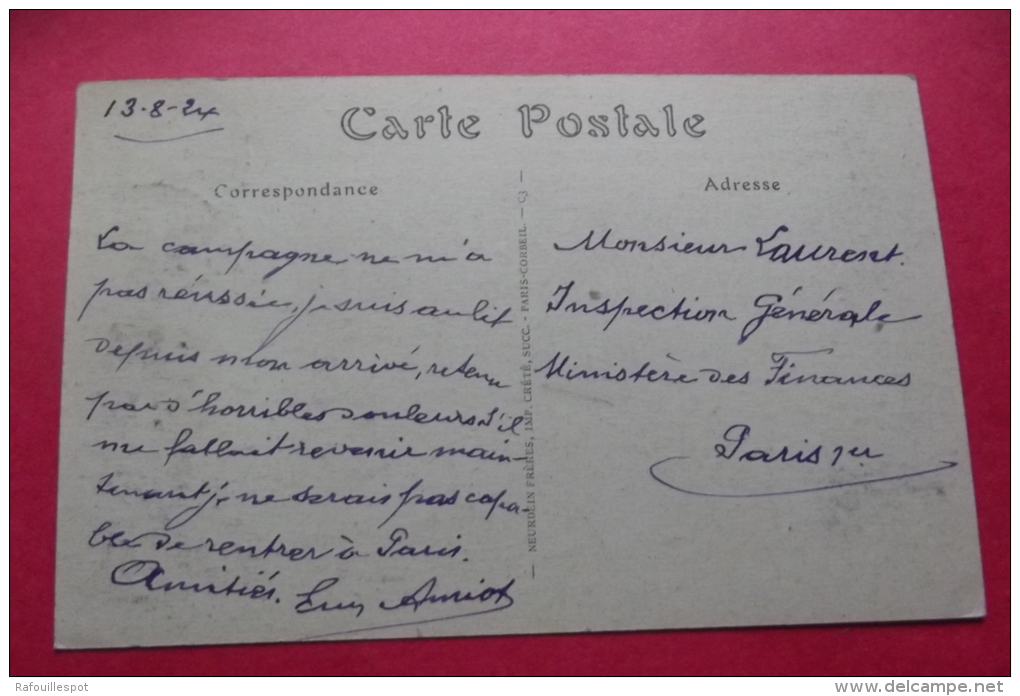 13-8-24
Carte Postale
Correspondance
La campagne ne m'a
pas réussie, je suis au lit
depuis mon arrivé, retenu
par d'horribles douleurs. S'il
me fallait revenir main-
tenant je ne serais pas capa-
ble de rentrer à Paris.
Amitiés. Amiot
NEURDEIN FRÈRES, IMP. CRÉTÉ, SUCC. - PARIS-CORBEIL. - C3
Adresse
Monsieur Laurent.
Inspection Générale
Ministère des Finances
Paris 1er
Rafouillespot
www.delcampe.net